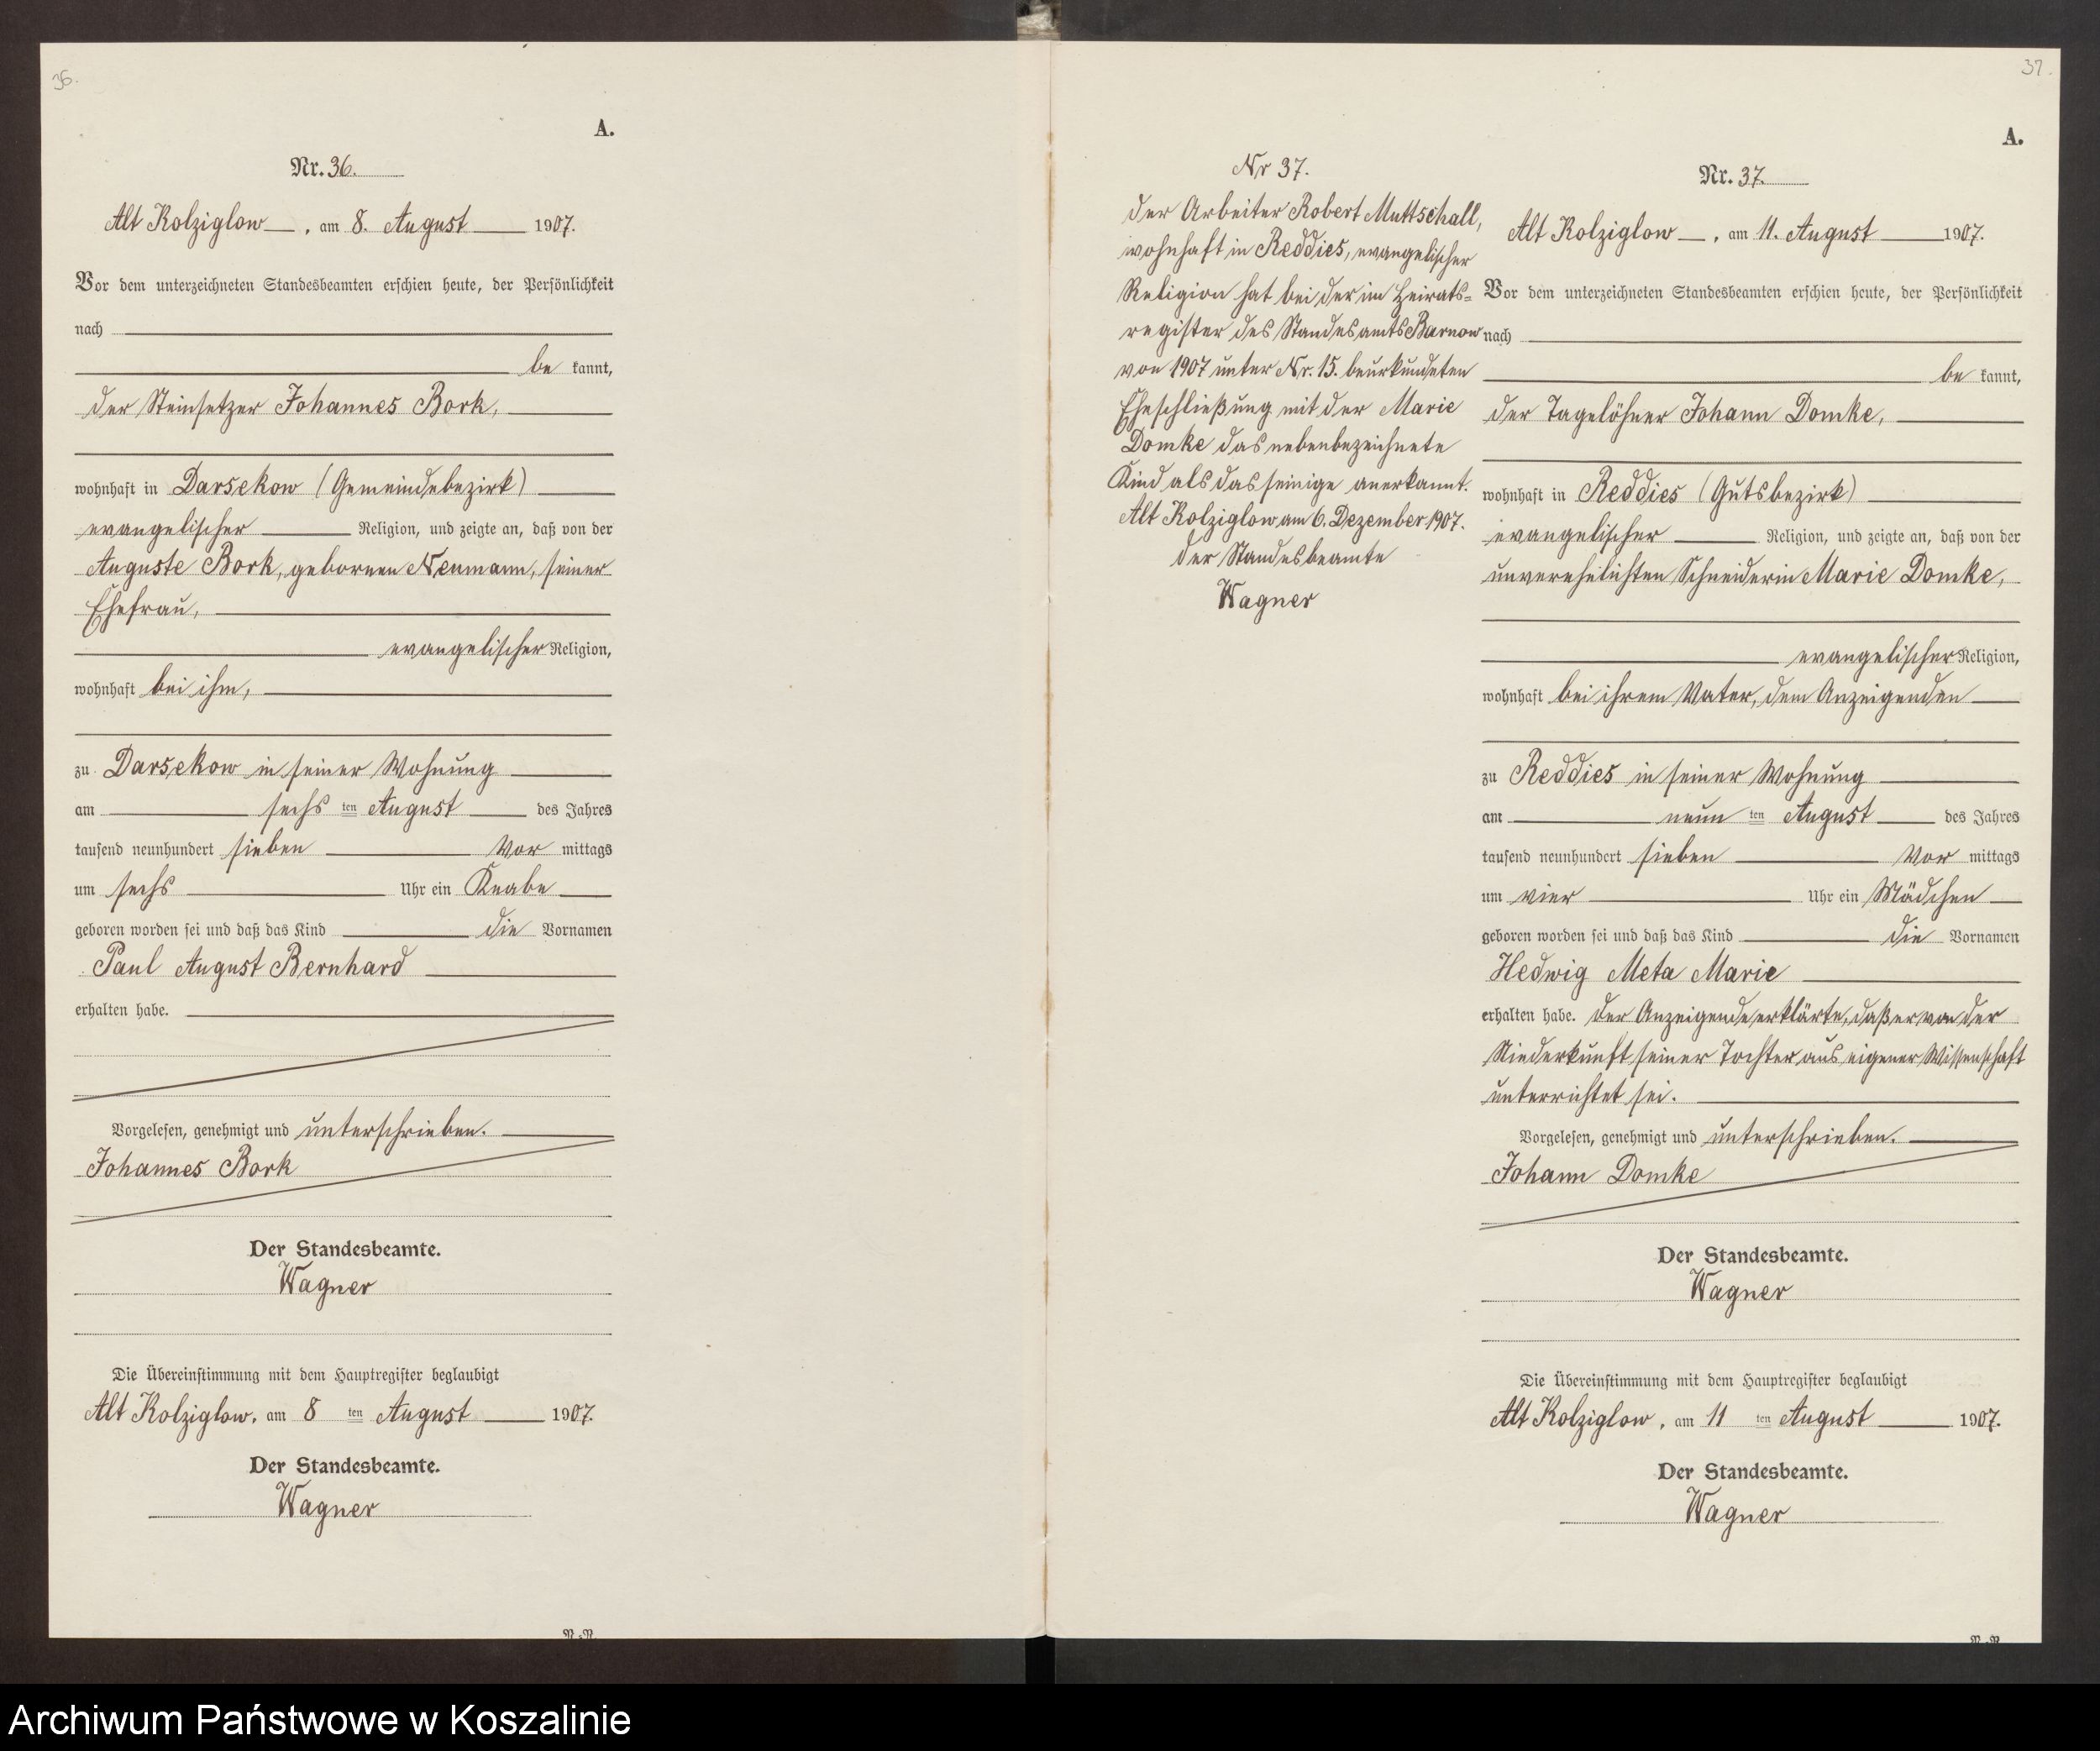 36.
A.
Nr. 36.
Alt Kolziglow, am 8. August 1907.
Vor dem unterzeichneten Standesbeamten erschien heute, der Persönlichkeit
nach
be kannt,
der Steinsetzer Johannes Bork,
wohnhaft in Darsekow (Gemeindebezirk)
evangelischer Religion, und zeigte an, daß von der
Auguste Bork, gebornen Neumann, seiner
Ehefrau,
evangelischer Religion,
wohnhaft bei ihm,
zu Darsekow in seiner Wohnung
am sechs ten August des Jahres
tausend neunhundert sieben Vor mittags
um sechs Uhr ein Knabe
geboren worden sei und daß das Kind die Vornamen
Paul August Bernhard
erhalten habe.
Vorgelesen, genehmigt und unterschrieben.
Johannes Bork
Der Standesbeamte.
Wagner
Die Übereinstimmung mit dem Hauptregister beglaubigt
Alt Kolziglow, am 8 ten August 1907.
Der Standesbeamte.
Wagner
37.
Nr 37.
Der Arbeiter Robert Muttschall,
wohnhaft in Reddies, evangelischer
Religion hat bei der im Heirats-
register des Standesamts Barnow
von 1907 unter Nr. 15. beurkundeten
Eheschließung mit der Marie
Domke das nebenbezeichnete
Kind als das seinige anerkannt.
Alt Kolziglow am 6. Dezember 1907.
Der Standesbeamte
Wagner
A.
Nr. 37.
Alt Kolziglow, am 11. August 1907.
Vor dem unterzeichneten Standesbeamten erschien heute, der Persönlichkeit
nach
be kannt,
der Tagelöhner Johann Domke,
wohnhaft in Reddies (Gutsbezirk)
evangelischer Religion, und zeigte an, daß von der
unverehelichten Schneiderin Marie Domke,
evangelischer Religion,
wohnhaft bei ihrem Vater, dem Anzeigenden
zu Reddies in seiner Wohnung
am neun ten August des Jahres
tausend neunhundert sieben Vor mittags
um vier Uhr ein Mädchen
geboren worden sei und daß das Kind die Vornamen
Hedwig Meta Marie
erhalten habe. Der Anzeigende erklärte, daß er von der
Niederkunft seiner Tochter aus eigener Wissenschaft
unterrichtet sei.
Vorgelesen, genehmigt und unterschrieben.
Johann Domke
Der Standesbeamte.
Wagner
Die Übereinstimmung mit dem Hauptregister beglaubigt
Alt Kolziglow, am 11 ten August 1907.
Der Standesbeamte.
Wagner
Archiwum Państwowe w Koszalinie